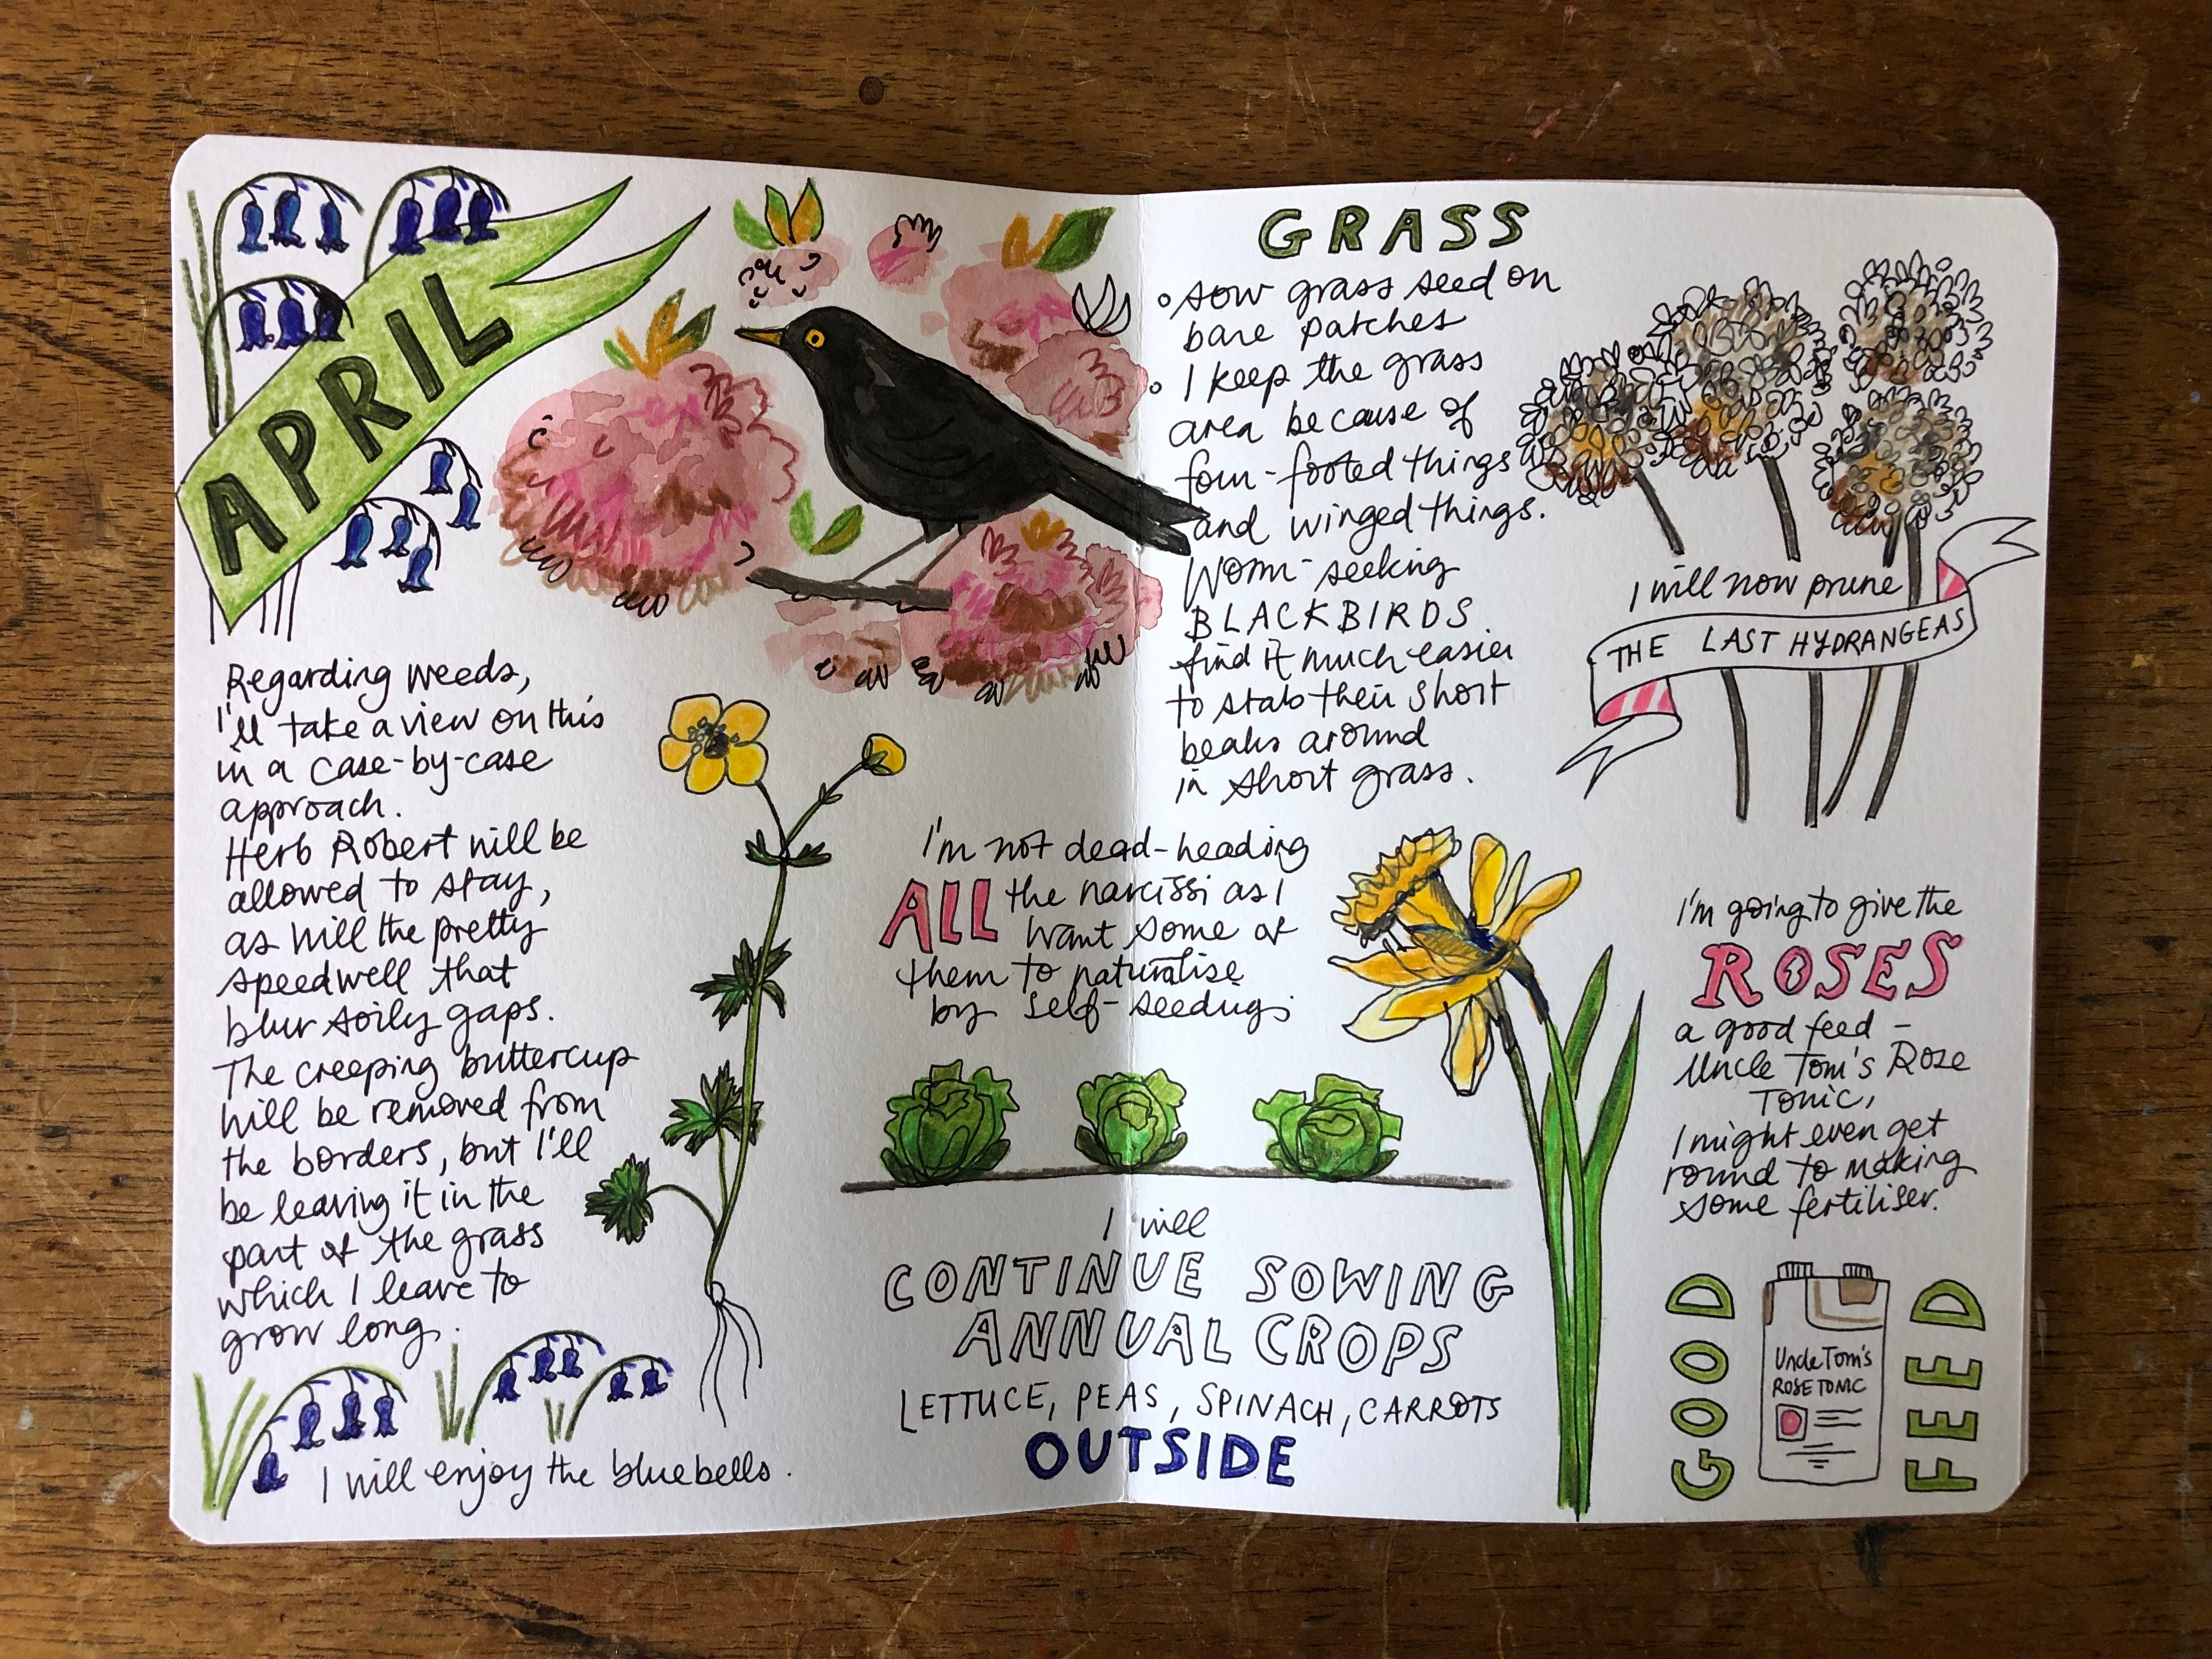 APRIL
Regarding weeds,
I'll take a view on this
in a case-by-case
approach.
Herb Robert will be
allowed to stay,
as will the pretty
speedwell that
blur soily gaps.
The creeping buttercup
will be removed from
the borders, but I'll
be leaving it in the
part of the grass
which I leave to
grow long.
I will enjoy the bluebells.
GRASS
sow grass seed on
bare patches
I keep the grass
area because of
four-footed things
and winged things.
Worm-seeking
BLACKBIRDS
find it much easier
to stab their short
beaks around
in short grass.
I will now prune
THE LAST HYDRANGEAS
I'm not dead-heading
ALL the narcissi as I
want some of
them to naturalise
by self-seeding
I will
CONTINUE SOWING
ANNUAL CROPS
LETTUCE, PEAS, SPINACH, CARROTS
OUTSIDE
I'm going to give the
ROSES
a good feed –
Uncle Tom's Rose
Tonic,
I might even get
round to making
some fertiliser.
GOOD
Uncle Tom's
ROSE TONIC
FEED